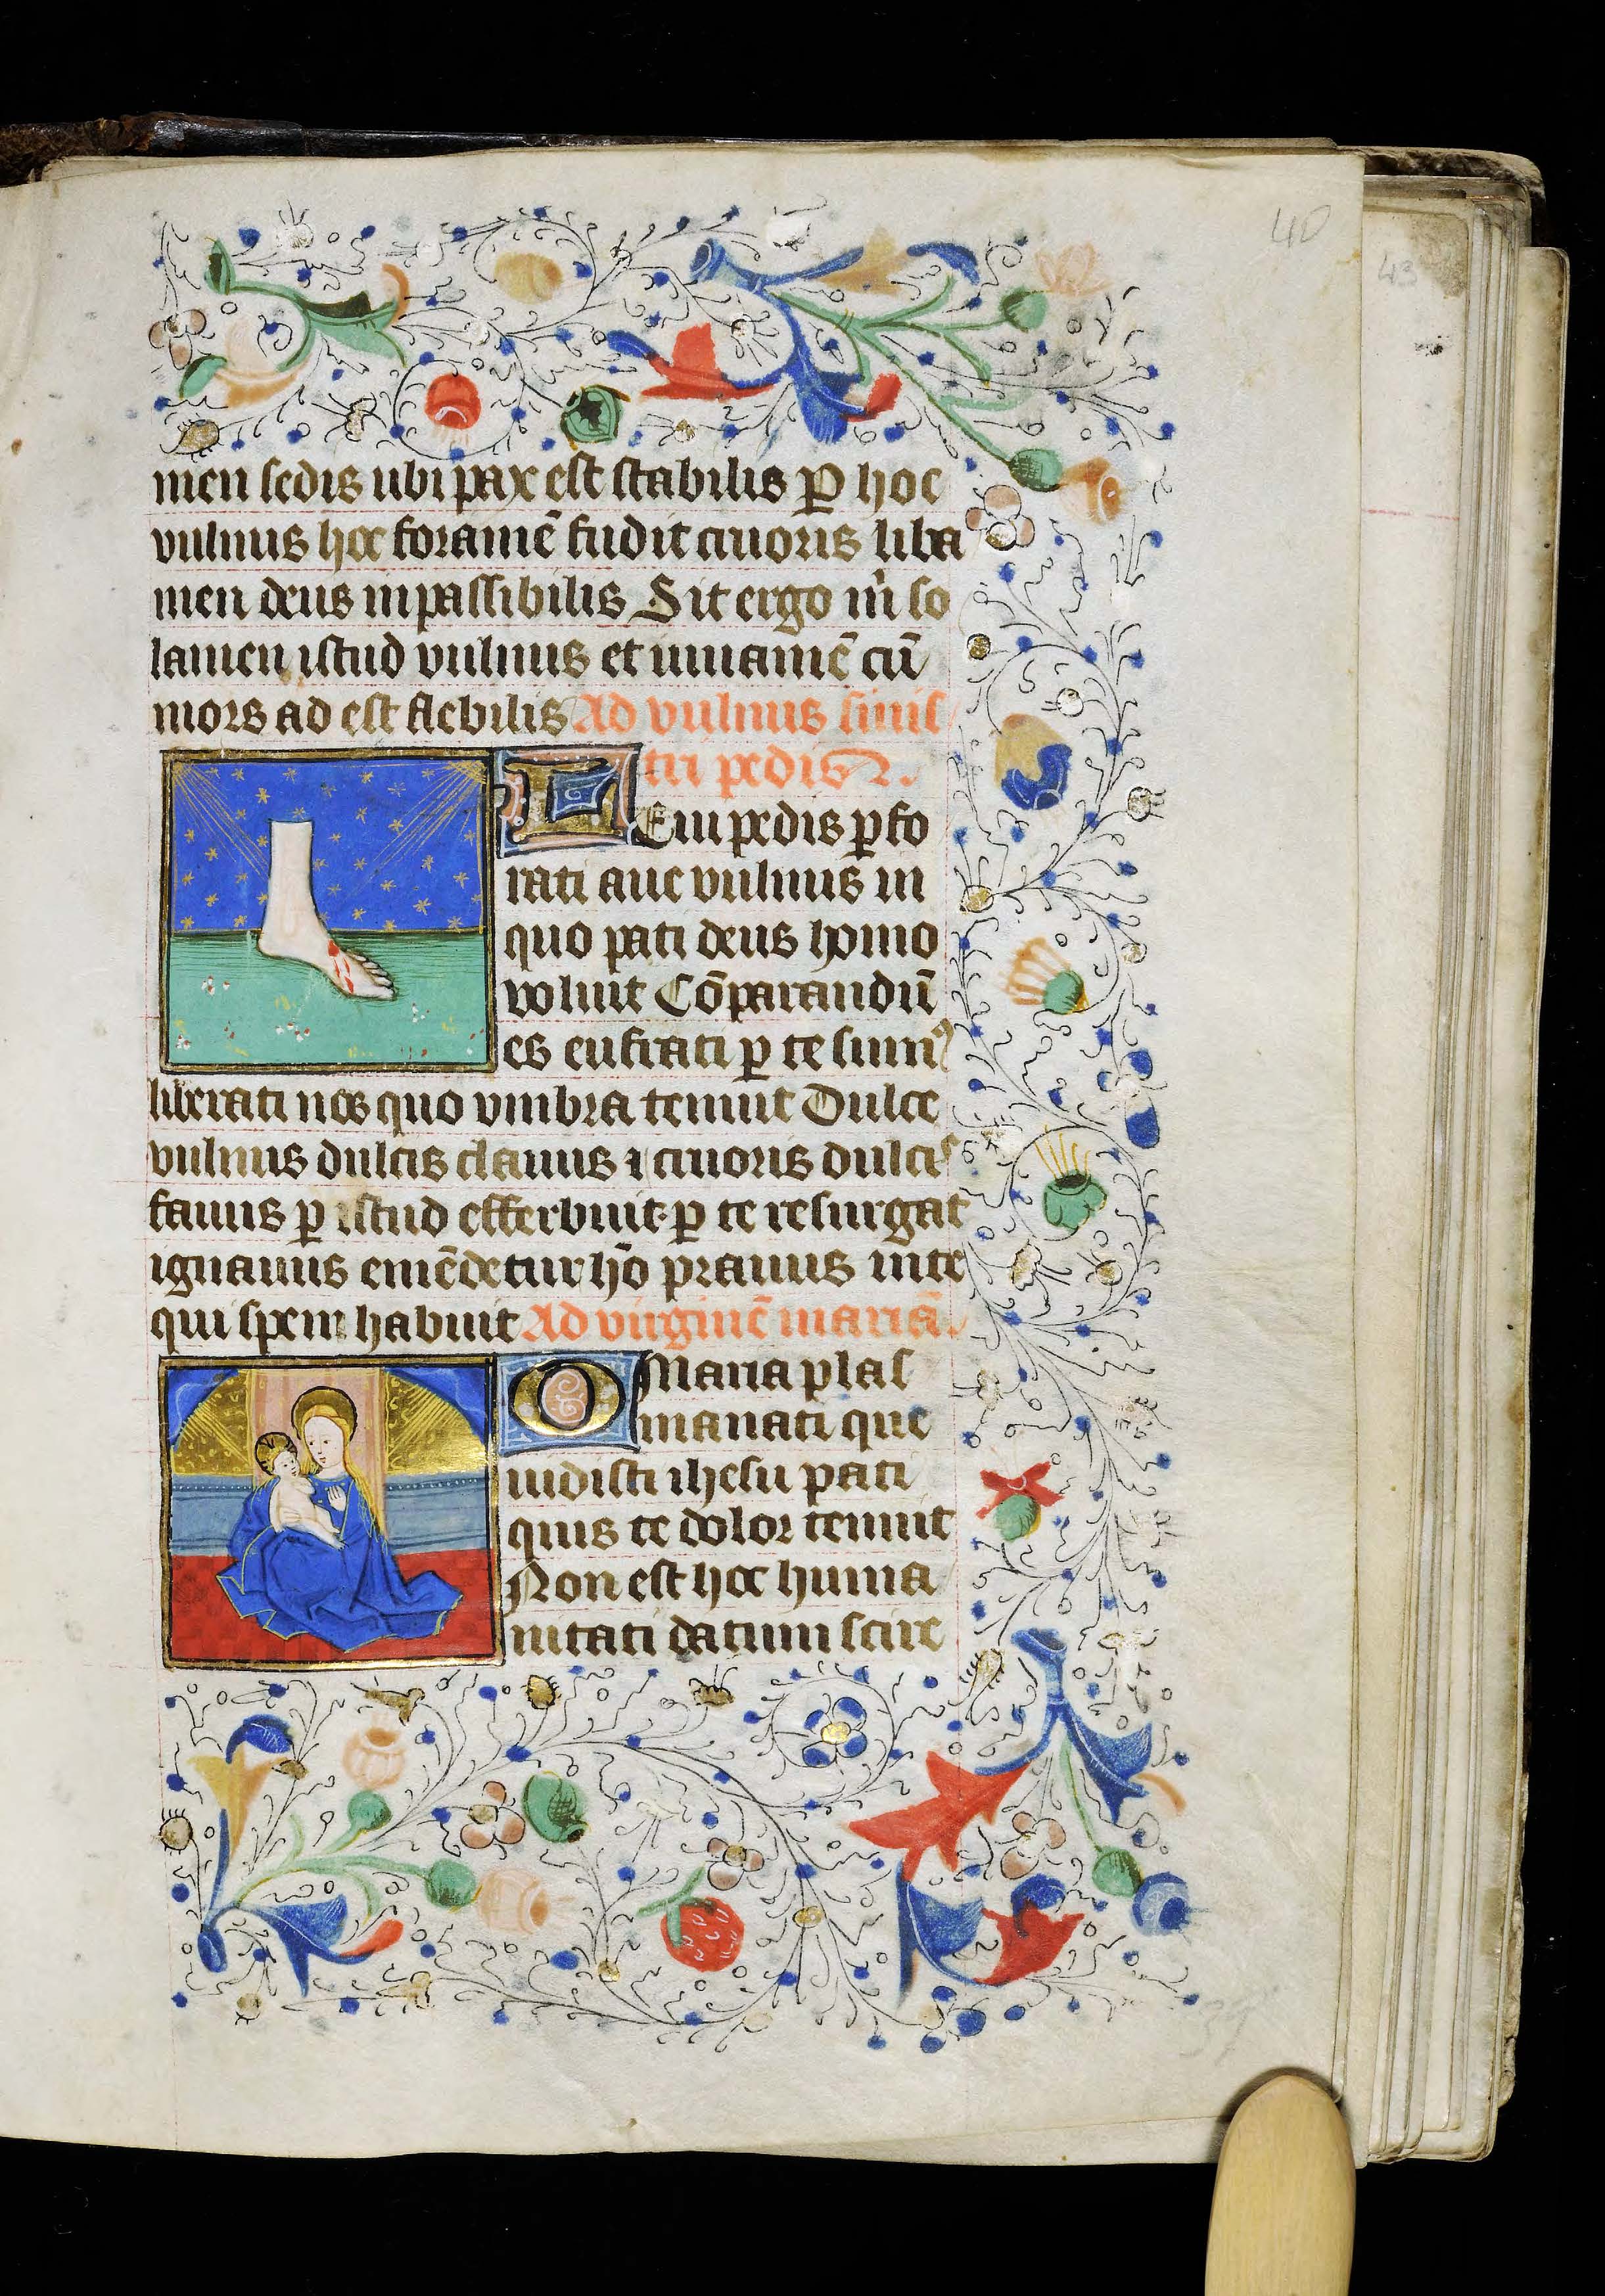 40
43
men sedis ubi pax est stabilis ꝑ hoc
vulnus hoc foramē fudit cruoris liba
men deus inpassibilis Sit ergo m̄ so
lamen istud vulnus et iuuamē cū
mors ad est flebilis Ad vulnus sinis
tri pedis
Leui pedis ꝑfo
rati aue vulnus in
quo pati deus homo
voluit Cōparandū
es eufrati ꝑ te sumꝰ
liberati nos quo vmbra tenuit Dulce
vulnus dulcis clauus ⁊ cruoris dulcis
fauus ꝑ istud efferbuit ꝑ te resurgat
ignauus emēdetur hō prauus in te
qui spem habuit Ad virginē mariā.
O Maria plas
manati que
uidisti ihesu pati
quis te dolor tenuit
Non est hoc huma
nitati datum scire